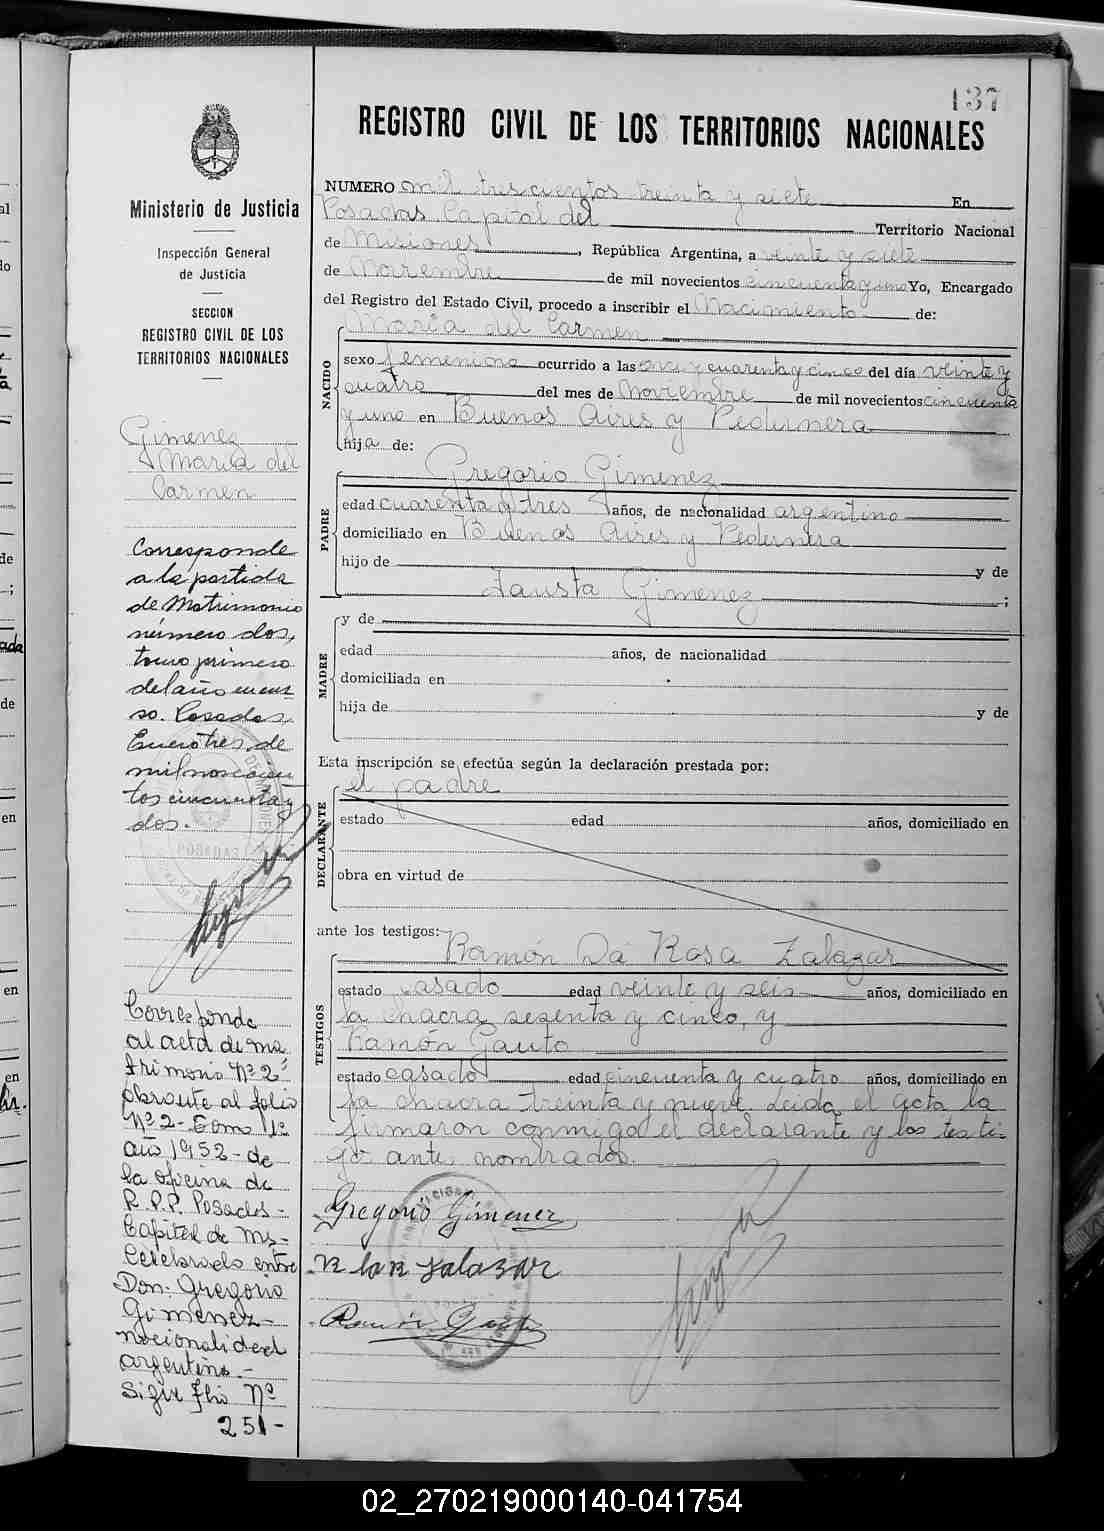 137
REGISTRO CIVIL DE LOS TERRITORIOS NACIONALES
Ministerio de Justicia
Inspección General
de Justicia
SECCION
REGISTRO CIVIL DE LOS
TERRITORIOS NACIONALES
Gimenez
María del
Carmen
Corresponde
a la partida
de Matrimonio
número dos,
tomo primero
del año en cur
so. Posadas,
Enero tres de
mil novecien
tos cincuenta y
dos.
Corresponde
al acta de ma
trimonio Nº 2
obrante al folio
Nº 2 - Tomo 1º
año 1952 - de
la oficina de
R.P.P. Posadas -
Capital de Ms -
Celebrado entre
Don: Gregorio
Gimenez -
nacionalidad
argentino. -
Sigue folio Nº
251 -
NUMERO mil trescientos treinta y siete En
Posadas Capital del Territorio Nacional
de Misiones, República Argentina, a veinte y siete
de Noviembre de mil novecientos cincuenta y uno Yo, Encargado
del Registro del Estado Civil, procedo a inscribir el Nacimiento de:
NACIDO
María del Carmen
sexo femenino ocurrido a las once y cuarenta y cinco del día veinte y
cuatro del mes de Noviembre de mil novecientos cincuenta
y uno en Buenos Aires y Pedernera
hija de:
PADRE
Gregorio Gimenez
edad cuarenta y tres años, de nacionalidad argentino
domiciliado en Buenos Aires y Pedernera
hijo de y de
Fausta Gimenez ;
MADRE
y de
edad años, de nacionalidad
domiciliada en
hija de y de
Esta inscripción se efectúa según la declaración prestada por:
DECLARANTE
el padre
estado edad años, domiciliado en
obra en virtud de
ante los testigos:
TESTIGOS
Ramón Da Rosa Zalazar
estado casado edad veinte y seis años, domiciliado en
la chacra sesenta y cinco, y
Ramón Gauto
estado casado edad cincuenta y cuatro años, domiciliado en
la chacra treinta y nueve. Leida el acta la
firmaron conmigo el declarante y los testi-
gos antes nombrados.
Gregorio Gimenez
Zalazar
Ramón Gauto
02_270219000140-041754